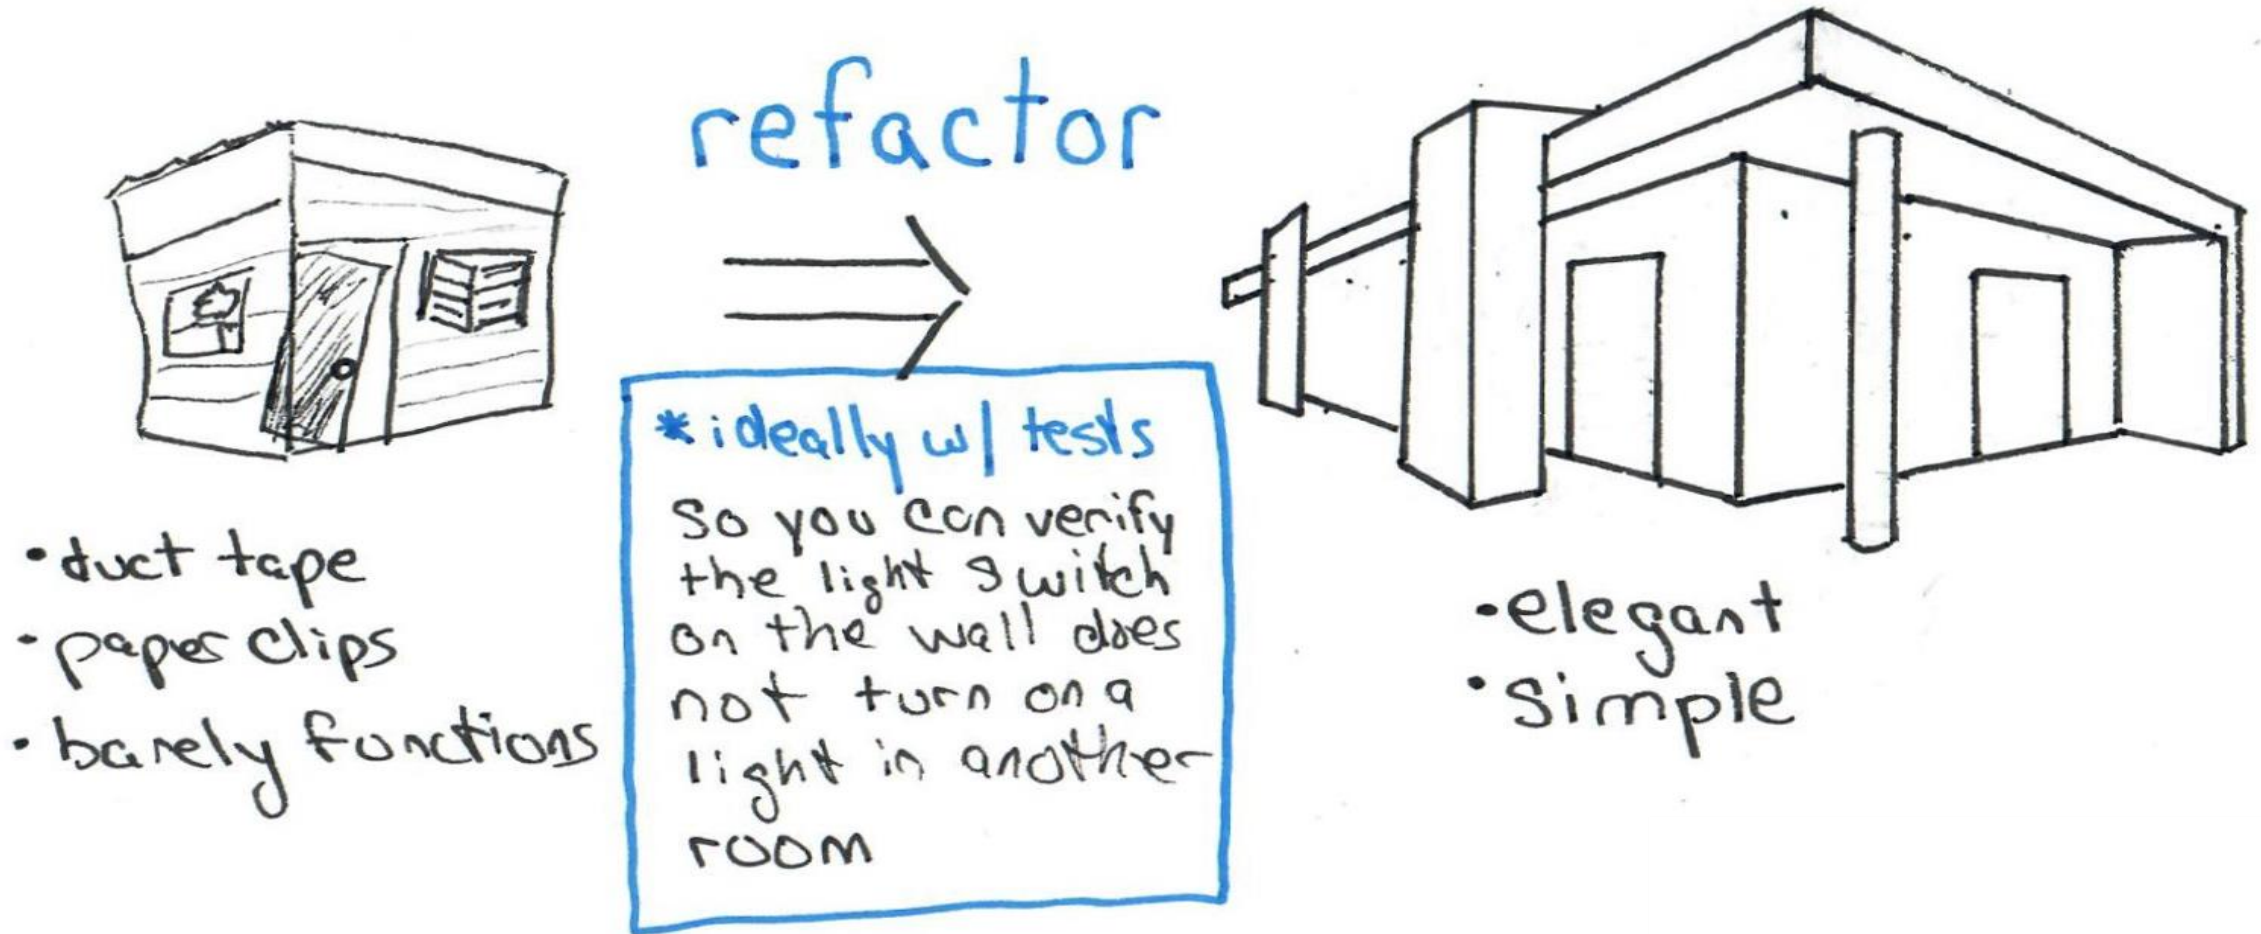 refactor
• duct tape
• paper clips
• barely functions
*ideally w/ tests
So you can verify
the light switch
on the wall does
not turn on a
light in another
room
• elegant
• simple